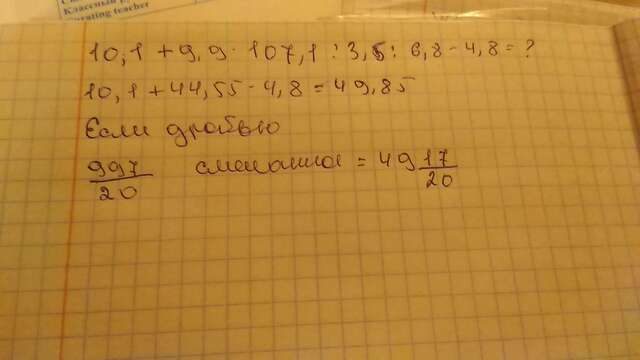 Классный р
Curating teacher
10,1 + 9,9 · 107,1 : 3,5 : 6,8 - 4,8 = ?
10,1 + 44,55 - 4,8 = 49,85
Если дробью
997/20 смешанная = 49 17/20